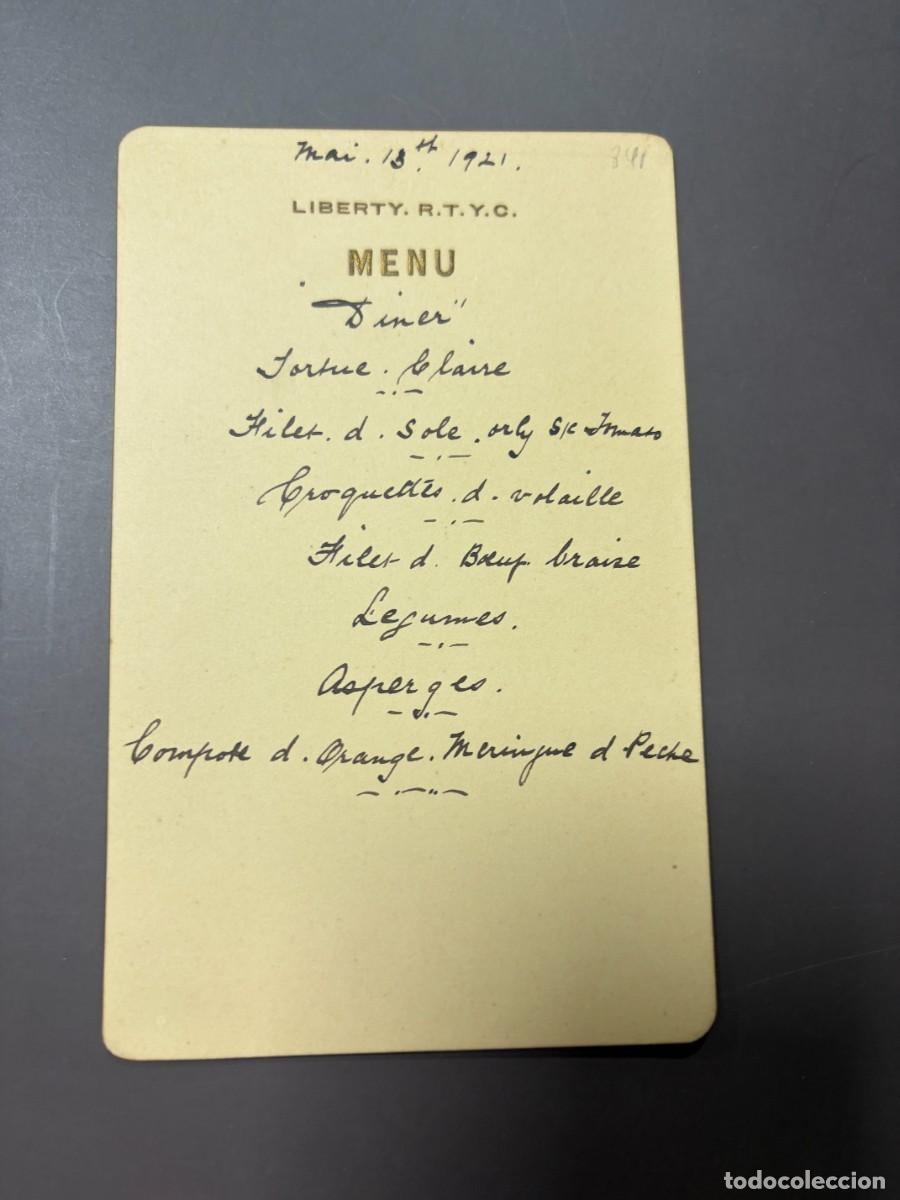 Mai. 13th. 1921.
341
LIBERTY. R.T.Y.C.
MENU
"Diner"
Tortue. Claire
Filet. d. Sole. orly S/c Tomato
Croquettes. d. volaille
Filet d. Bœuf. braise
Legumes.
Asperges.
Compote d. Orange. Meringue d Peche
todocoleccion